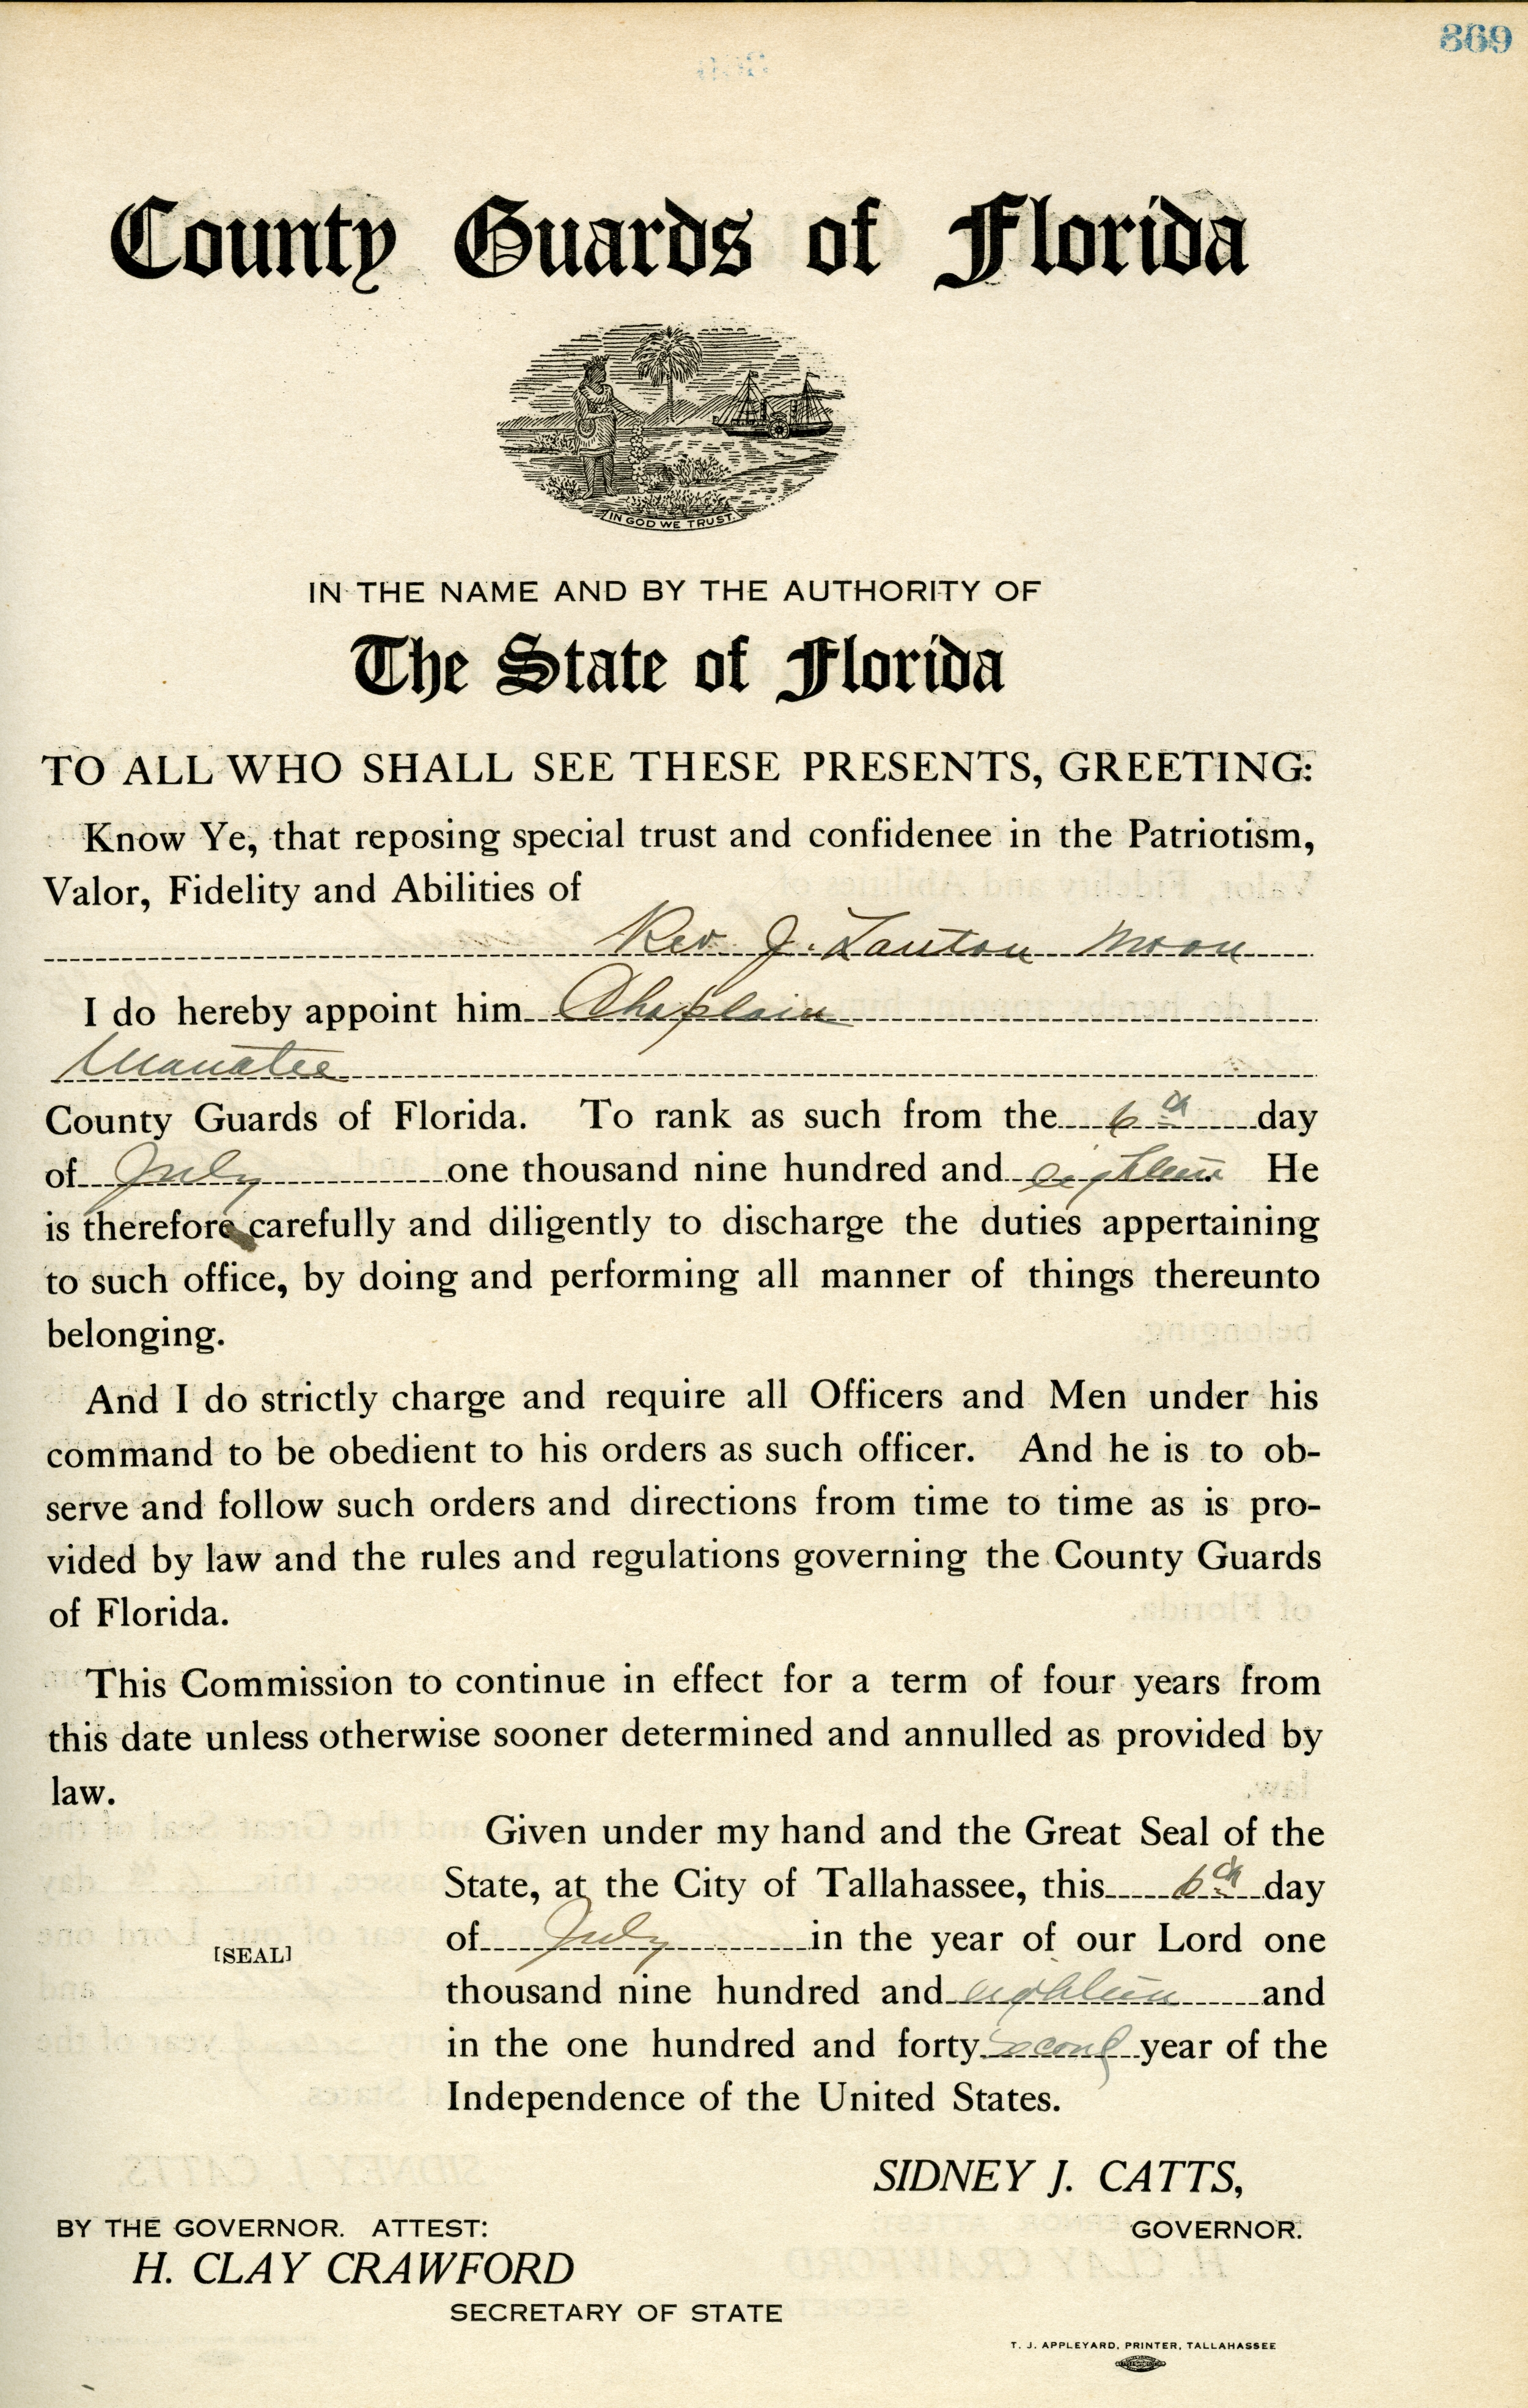 869
County Guards of Florida
IN GOD WE TRUST
IN THE NAME AND BY THE AUTHORITY OF
The State of Florida
TO ALL WHO SHALL SEE THESE PRESENTS, GREETING:
Know Ye, that reposing special trust and confidenee in the Patriotism,
Valor, Fidelity and Abilities of
Rev. J. Lauton Moon
I do hereby appoint him Chaplain
Manatee
County Guards of Florida. To rank as such from the 6th day
of July one thousand nine hundred and eighteen He
is therefore carefully and diligently to discharge the duties appertaining
to such office, by doing and performing all manner of things thereunto
belonging.
And I do strictly charge and require all Officers and Men under his
command to be obedient to his orders as such officer. And he is to ob-
serve and follow such orders and directions from time to time as is pro-
vided by law and the rules and regulations governing the County Guards
of Florida.
This Commission to continue in effect for a term of four years from
this date unless otherwise sooner determined and annulled as provided by
law.
Given under my hand and the Great Seal of the
State, at the City of Tallahassee, this 6th day
of July in the year of our Lord one
[SEAL]
thousand nine hundred and eighteen and
in the one hundred and forty second year of the
Independence of the United States.
SIDNEY J. CATTS,
GOVERNOR.
BY THE GOVERNOR. ATTEST:
H. CLAY CRAWFORD
SECRETARY OF STATE
T. J. APPLEYARD, PRINTER, TALLAHASSEE